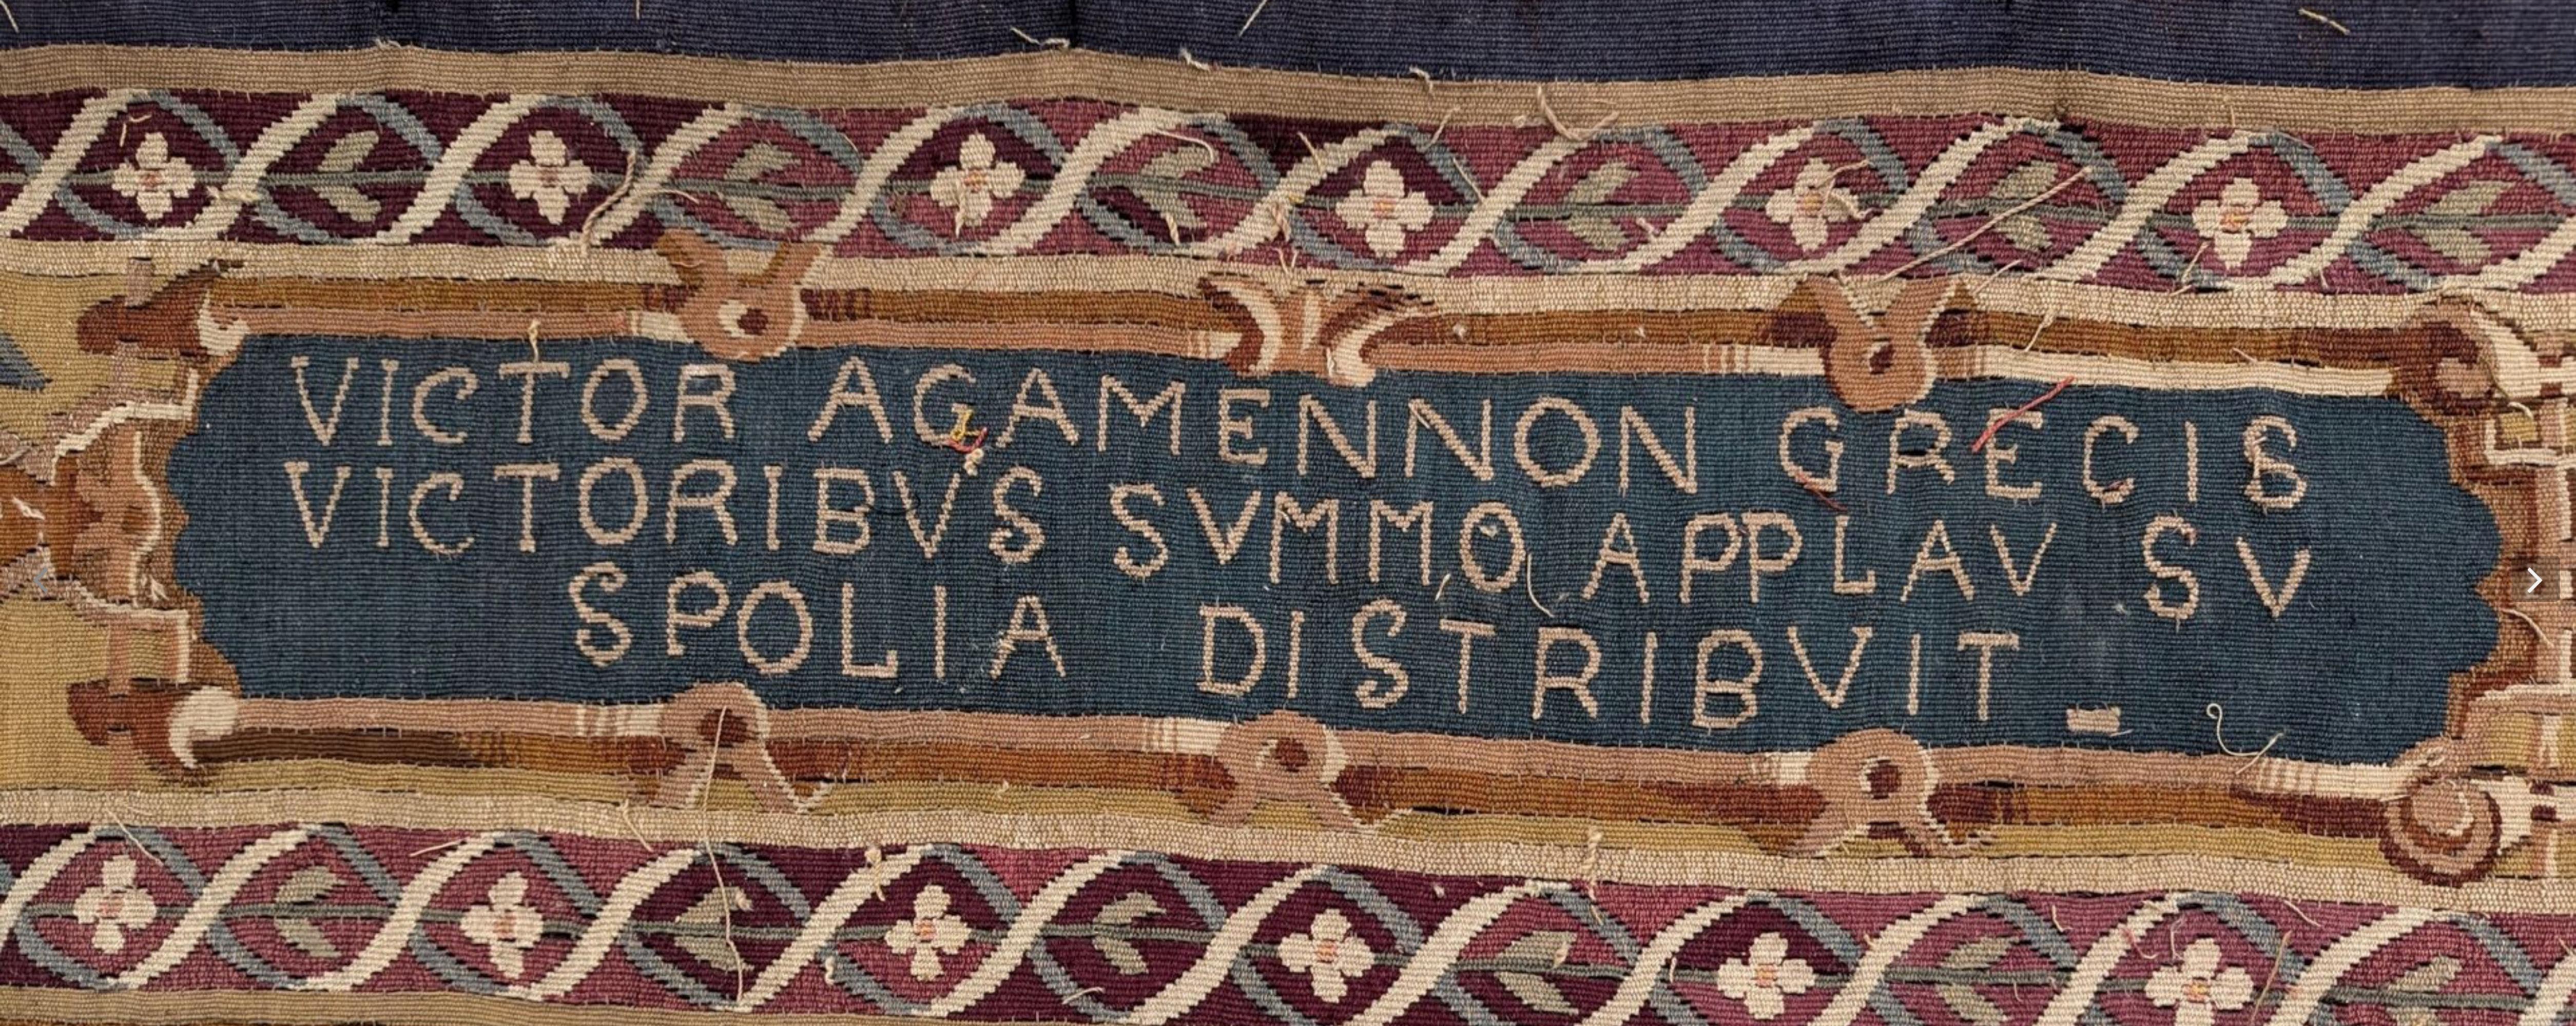 VICTOR AGAMENNON GRECIS
VICTORIBVS SVMMO APPLAV SV
SPOLIA DISTRIBVIT